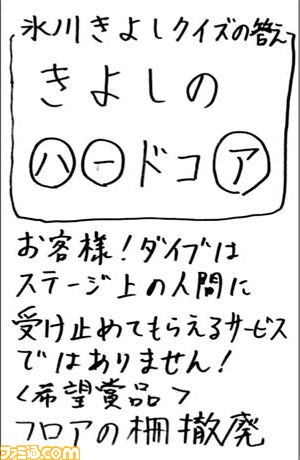 氷川きよしクイズの答え
きよしの
ハードコア
お客様!ダイブは
ステージ上の人間に
受け止めてもらえるサービス
ではありません!
<希望賞品>
フロアの柵撤廃
ファミ通.com